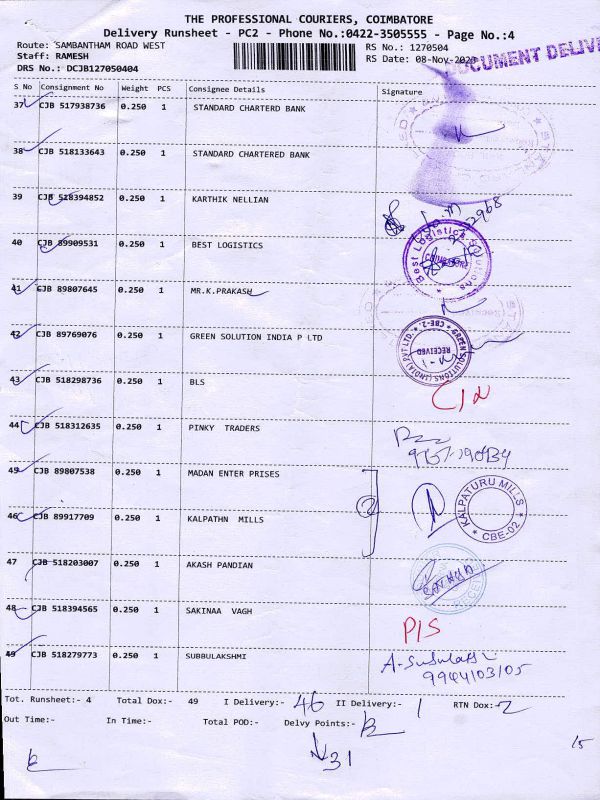 THE PROFESSIONAL COURIERS, COIMBATORE
Delivery Runsheet - PC2 - Phone No.:0422-3505555 - Page No.:4
Route: SAMBANTHAM ROAD WEST
Staff: RAMESH
DRS No.: DCJB127050404
RS No.: 1270504
RS Date: 08-Nov-2023
DOCUMENT DELIVE
S No Consignment No Weight PCS Consignee Details Signature
37 CJB 517938736 0.250 1 STANDARD CHARTERD BANK
38 CJB 518133643 0.250 1 STANDARD CHARTERED BANK
39 CJB 528394852 0.250 1 KARTHIK NELLIAN
2968
40 CJB 89909531 0.250 1 BEST LOGISTICS
Best Logistics Solutions
41 CJB 89807645 0.250 1 MR.K.PRAKASH
42 CJB 89769076 0.250 1 GREEN SOLUTION INDIA P LTD
GREEN SOLUTIONS (INDIA) PVT LTD. CBE-2.
RECEIVED
43 CJB 518298736 0.250 1 BLS
44 CJB 518312635 0.250 1 PINKY TRADERS
45 CJB 89807538 0.250 1 MADAN ENTER PRISES
2
KALPATURU MILLS
CBE-02
46 CJB 89917709 0.250 1 KALPATHN MILLS
47 CJB 518203007 0.250 1 AKASH PANDIAN
48 CJB 518394565 0.250 1 SAKINAA VAGH
P/S
49 CJB 518279773 0.250 1 SUBBULAKSHMI
9944103105
Tot. Runsheet:- 4 Total Dox:- 49 I Delivery:- 46 II Delivery:- 1 RTN Dox:- 2
Out Time:- In Time:- Total POD:- Delvy Points:-
31
15